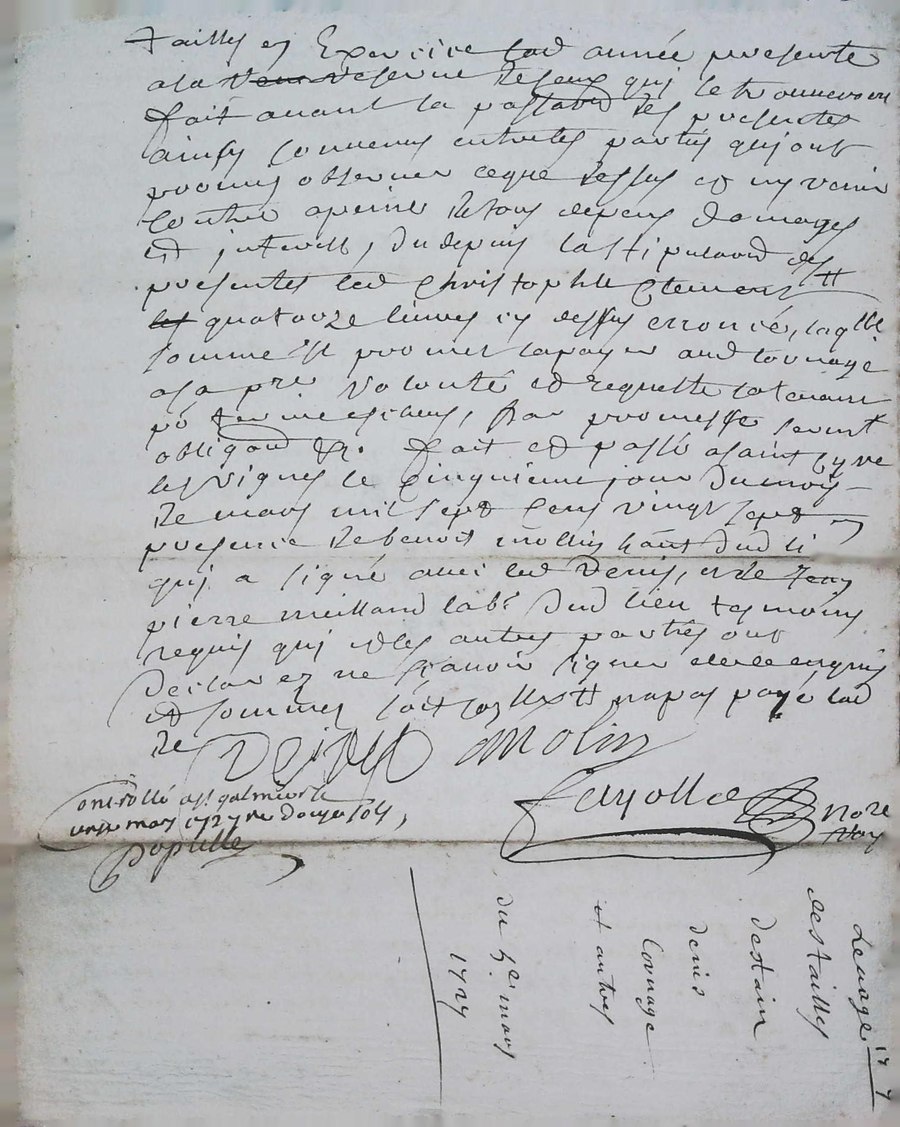 tailles en Exercice lad année presente
a la reserve de ceux qui se trouveront
fait avant la passaon des presentes
ainsy convenu entre les parties qui ont
promis observer ce que dessus et ny venir
contre a peine de tous depens domages
et interests, du depuis la stipulaon des
presentes led Christophle Clement
quatorze livres cy dessus enoncé, laqlle
somme Il promet la payer aud Cornage
a sa pre volonté et requette
par promesse serment
obligaon &c. fait et passé a saint Cyre
les Vignes le Cinquieme jour du mois
de mars mil sept Cens vingt sept
presence de benoit mollin dud li
qui a signé avec led Denis, et de Jean
pierre meilland labr dud lieu temoins
requis qui et les autres parties ont
declarez ne scavoir signer de ce enquis
et sommez payé lad
De
Denis Molin
Fayolle Nore
Roy
Controllé a st galmier le
mars 1727 re douze sols,
Populle
Levage
des tailles
destain
denis
Cornage
et autres
du 5e mars
1727